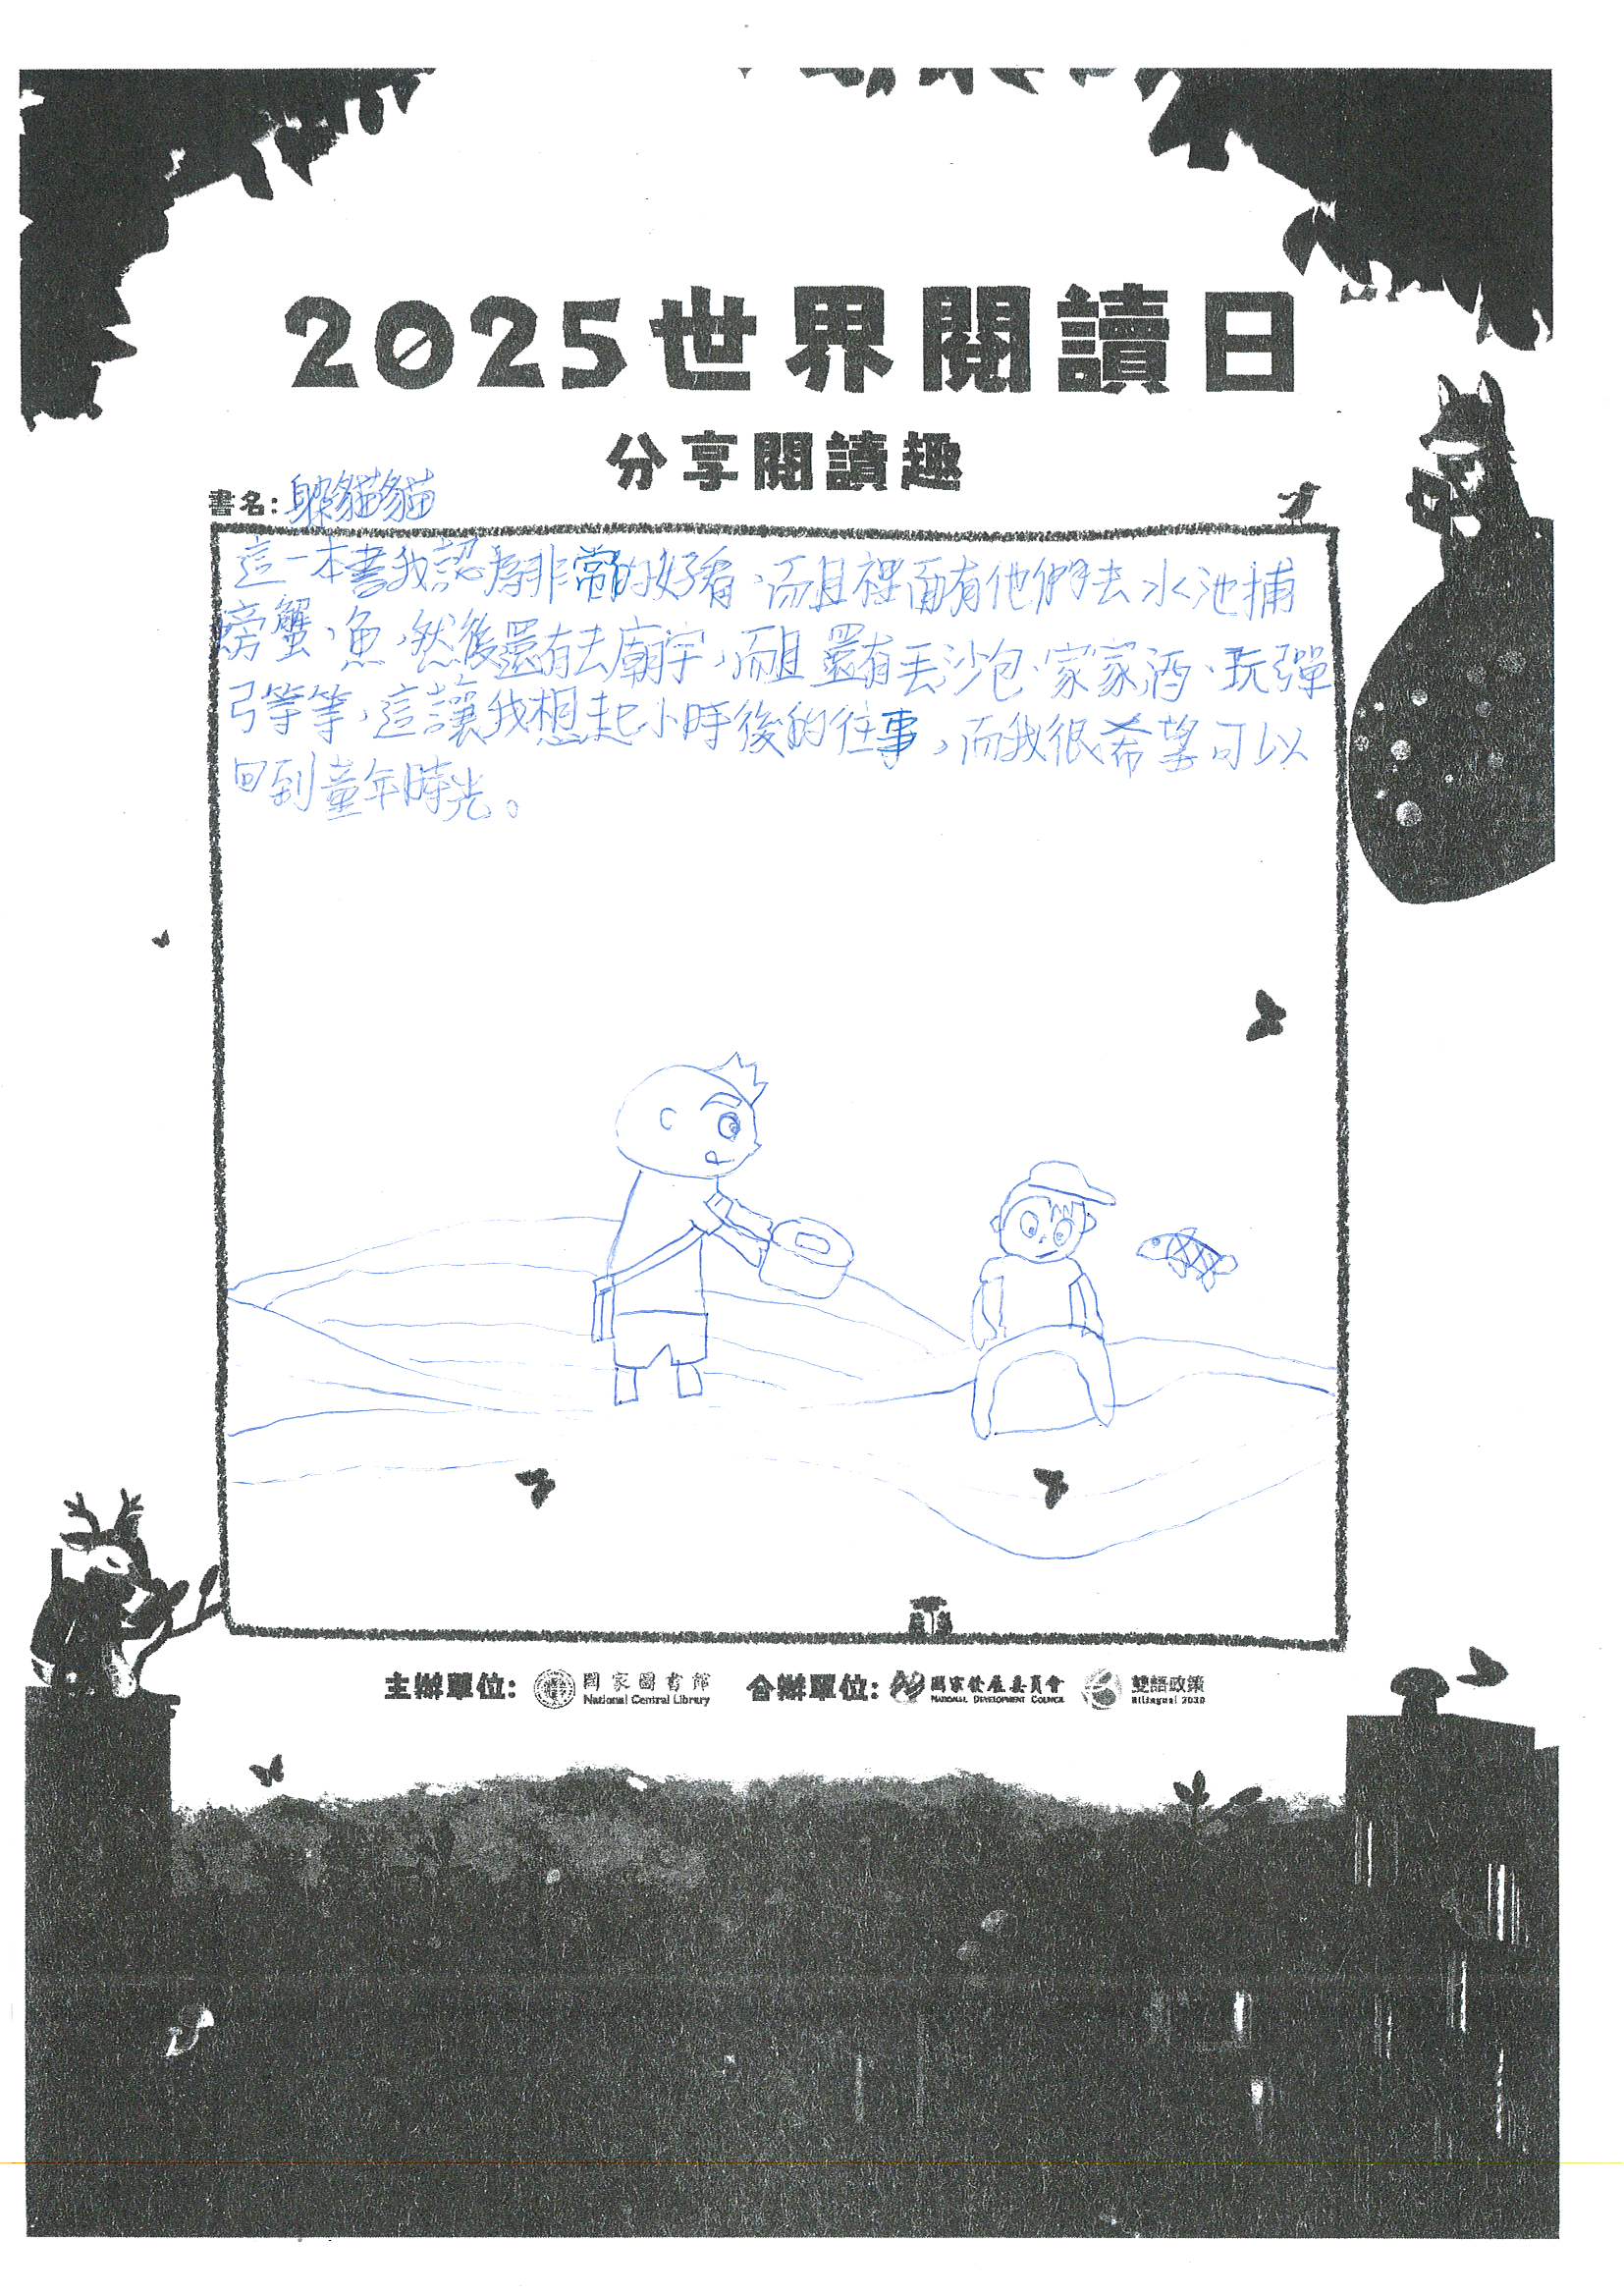 2025世界閱讀日
分享閱讀趣
書名：躲貓貓
這一本書我認為非常的好看，而且裡面有他們去水池捕
螃蟹、魚，然後還有去廟宇，而且還有丟沙包、家家酒、玩彈
弓等等，這讓我想起小時後的往事，而我很希望可以
回到童年時光。
主辦單位：國家圖書館 National Central Library 合辦單位：國家發展委員會 NATIONAL DEVELOPMENT COUNCIL 雙語政策 Bilingual 2030